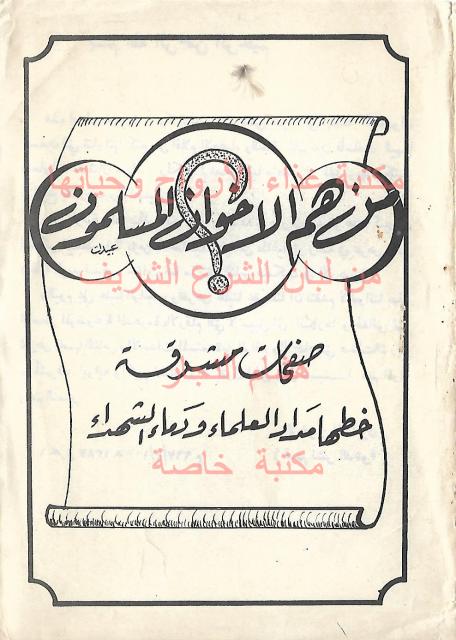 من هم الاخوان المسلمون ؟
عبيدات
صفحات مشرقة
خطها مداد العلماء ودماء الشهداء
مكتبة غذاء الأرواح وحياتها
من لبان الشرع الشريف
هشام النجار
مكتبة خاصة